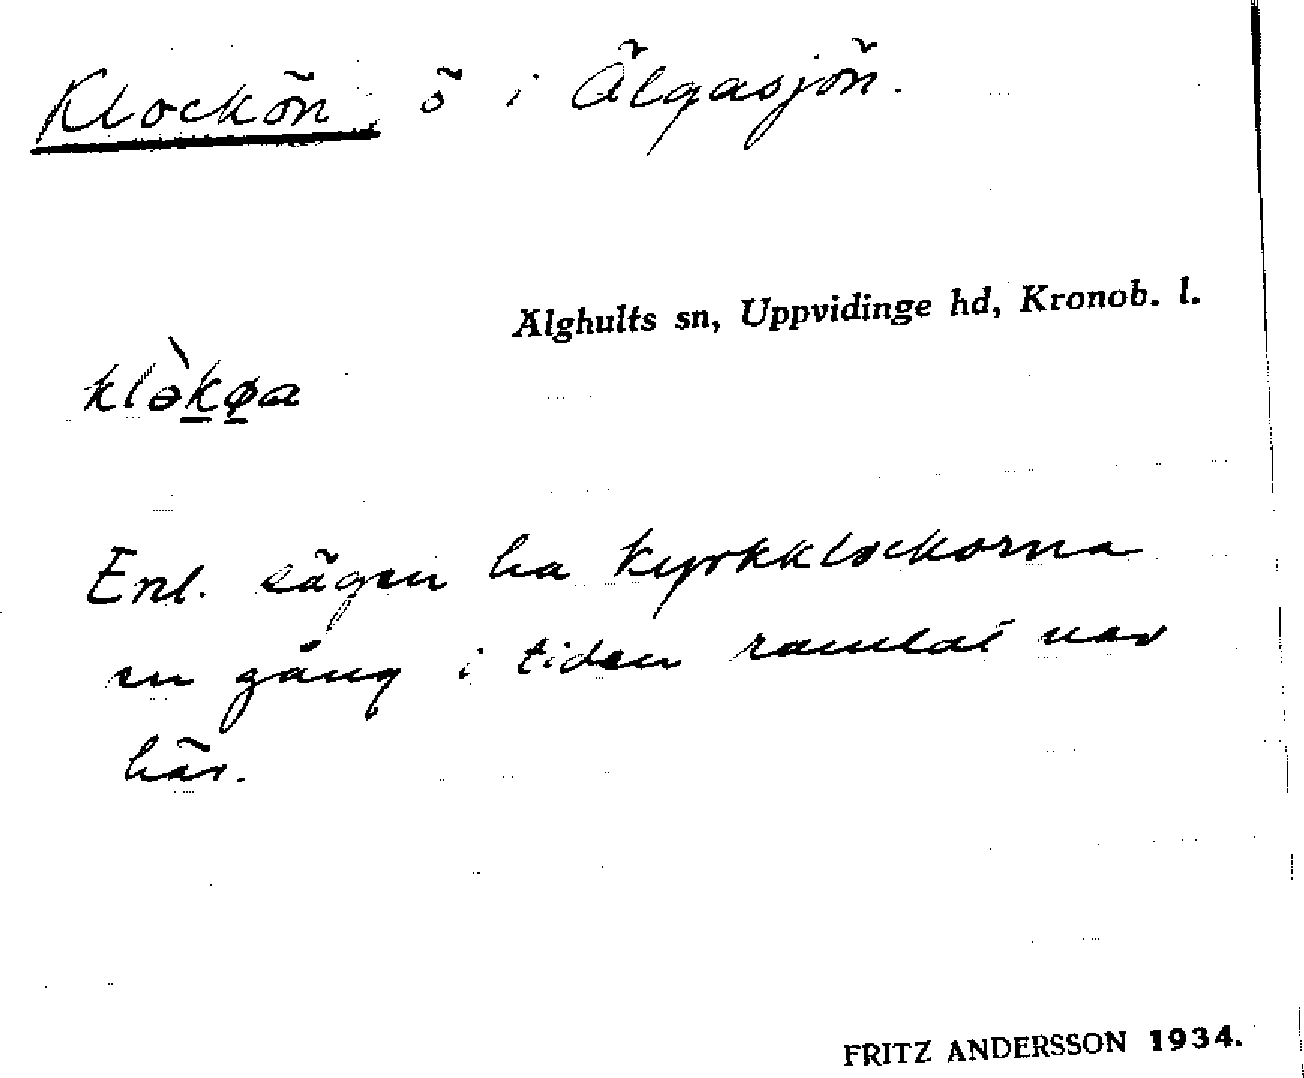 Klockön, ö i Älgasjön.
Älghults sn, Uppvidinge hd, Kronob. l.
klòkøa
Enl. sägen ha kyrkklockorna
en gång i tiden ramlat ner
här.
FRITZ ANDERSSON 1934.